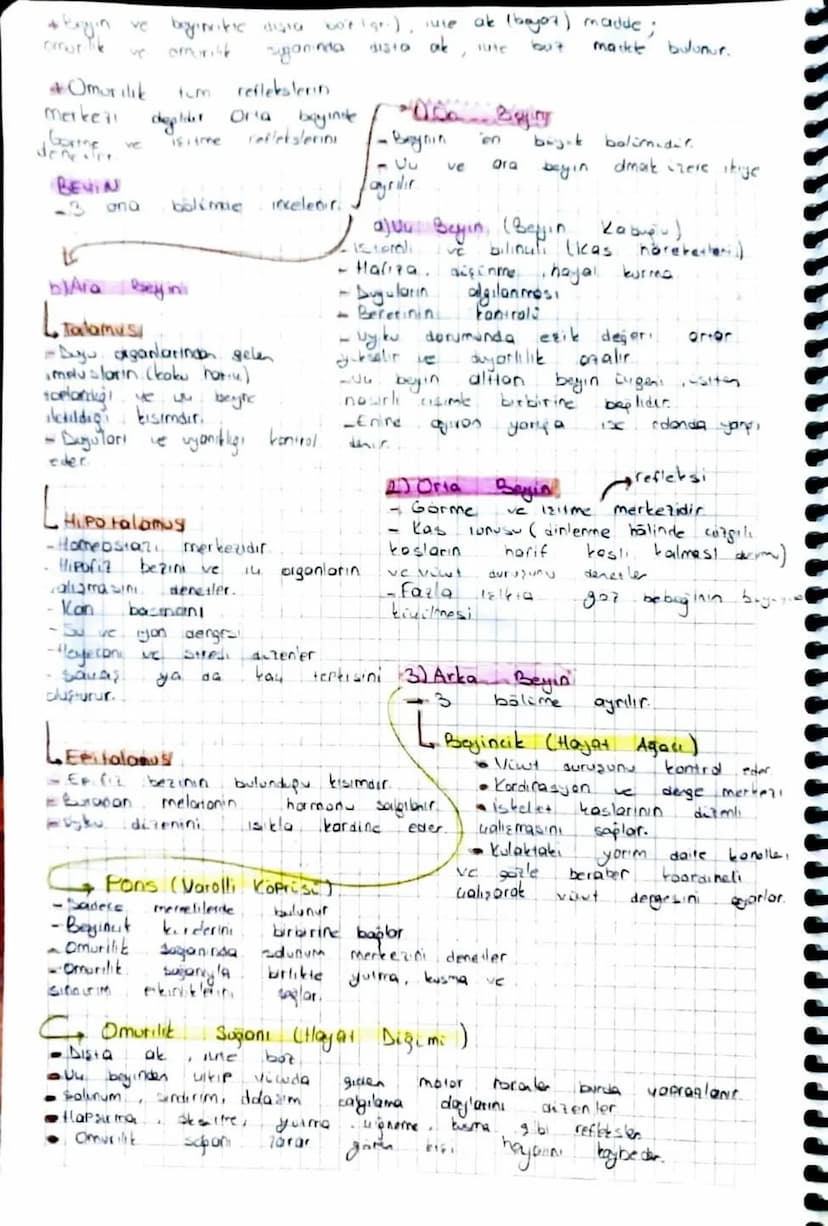 * Beyin ve beyincikte dışta boz (gri), içte ak (beyaz) madde;
omurilik ve omurilik soğanında dışta ak, içte boz madde bulunur.
* Omurilik tüm reflekslerin
merkezi değildir Orta beyinde
görme ve işitme reflekslerini
denetler.
BEYİN
- 3 ana bölümde incelenir.
1) Ön Beyin
- Beynin en büyük bölümüdür.
- Uç ve ara beyin olmak üzere ikiye
ayrılır.
a) Uç Beyin (Beyin Kabuğu)
- İstemli ve bilinçli (kas hareketleri)
- Hafıza, düşünme, hayal kurma
- Duyguların algılanması
- Becerinin kontrolü
- Uyku durumunda eşik değeri artar
yükselir ve duyarlılık azalır.
- Uç beyin alttan beyin üçgeni, üstten
nasırlı cisimle birbirine bağlıdır.
- Enine ayıran yarığa ise rolando yarığı
denir.
b) Ara Beyin
Talamus
- Duyu organlarından gelen
impulsların (koku hariç)
toplandığı ve uç beyne
iletildiği kısımdır.
- Duyguları ve uyanıklığı kontrol
eder.
Hipotalamus
- Homeostazi merkezidir
- Hipofiz bezini ve iç organların
çalışmasını denetler.
- Kan basıncını
- Su ve iyon dengesi
- Heyecanı ve stresi düzenler
- Savaş ya da kaç tepkisini
oluşturur.
Epitalamus
- Epifiz bezinin bulunduğu kısımdır.
- Buradan melatonin hormonu salgılanır.
- Uyku düzenini ışıkla kordine eder.
2) Orta Beyin
refleksi
- Görme ve işitme merkezidir
- Kas tonusu (dinlenme hâlinde çizgili
kasların hafif kaslı kalması durumu)
ve vücut duruşunu denetler
- Fazla ışıkta göz bebeğinin
küçülmesi
3) Arka Beyin
→ 3 bölüme ayrılır.
Beyincik (Hayat Ağacı)
• Vücut duruşunu kontrol eder
• Kordinasyon ve denge merkezi
• İskelet kaslarının düzenli
çalışmasını sağlar.
• Kulaktaki yarım daire kanalları
ve gözle beraber koordineli
çalışarak vücut dengesini ayarlar.
Pons (Varolli Köprüsü)
- Sadece memelilerde bulunur
- Beyincik kürelerini birbirine bağlar
- Omurilik soğanında solunum merkezini denetler
- Omurilik soğanıyla birlikte yutma, kusma ve
sindirim etkinliklerini sağlar.
Omurilik Soğanı (Hayat Düğümü)
• Dışta ak, içte boz
• Uç beyinden çıkıp vücuda giden motor nöronlar burda çaprazlanır
• Solunum, sindirim, dolaşım olaylarını düzenler
• Hapşırma, öksürme, yutma, çiğneme, kusma gibi refleksler
• Omurilik soğanı zarar gören kişi hayatını kaybeder.